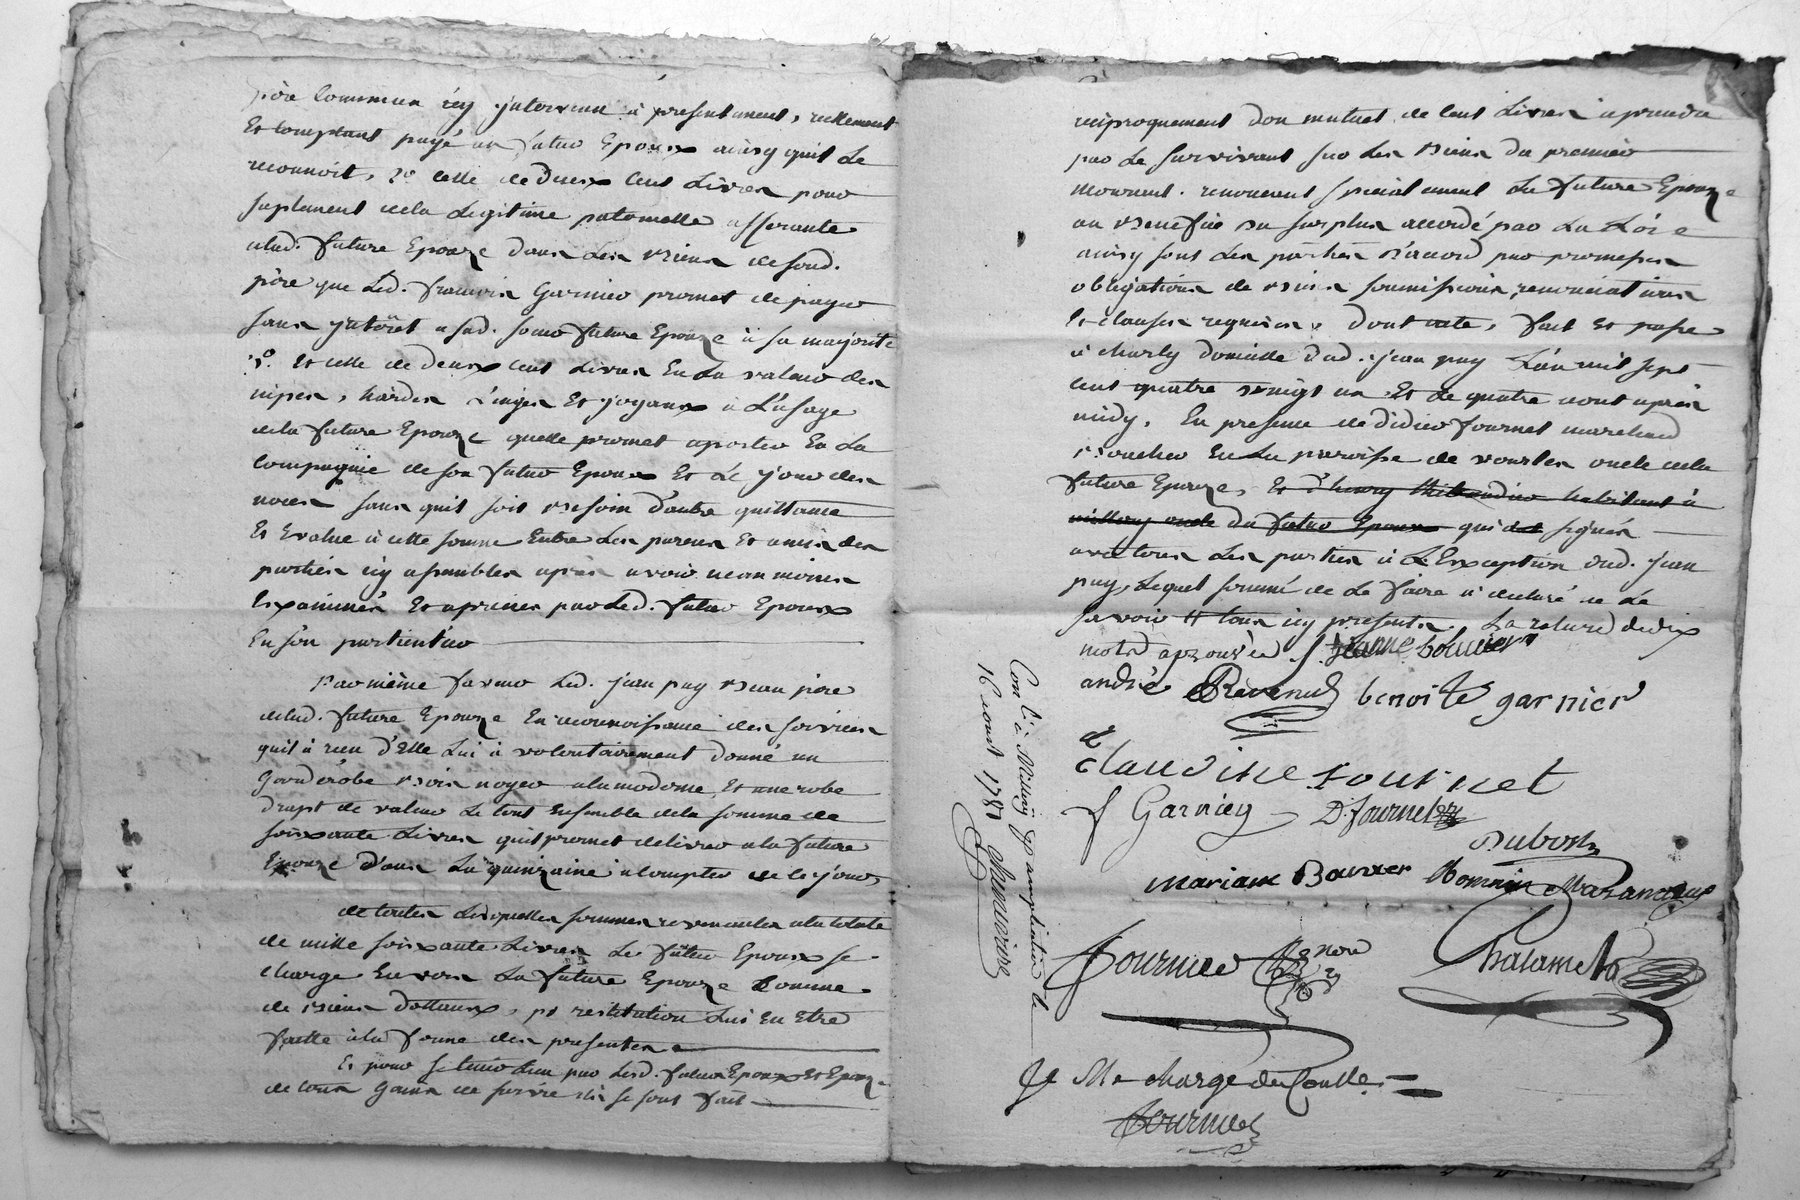 père Commun icy intervenu à presentement, reellement
Et Comptant payé au futur Epoux ainsy quil Le
reconnoit, 2o celle de Deux Cent Livres pour
suplement de la Legitime paternelle afferante
alad. future Epouze dans Les Biens desond.
père que Led. françois Garnier promet de payer
sans jnteret asad. soeur future Epouze à sa majorité
3o. Et celle de deux cent Livres En La valeur des
nipes, hardes Linges Et joyaux à L'usage
dela future Epouze quelle promet aporter En La
Compagnie de son futur Epoux Et Le jour des
noces sans quil soit Besoin d'autre quittance
Et Evalué à cette somme Entre Les parens Et amis des
parties icy assemblés après avoir neanmoins
Examinés Et apreciés par Led. futur Epoux
En son particulier
Par même faveur Led. jean puy Beau père
delad. future Epouze En reconnoissance des services
quil à reçu d'Elle Lui à volontairement donné un
Garderobe Bois noyer alamoderne, Et une robe
drapt de valeur Le tout Ensemble dela somme de
soixante Livres quil promet delivrer ala future
Epouze dans La quinzaine à Compter de ce jour
de toutes Lesquelles sommes revenantes ala totale
de mille soixante Livres Le futur Epoux se
charge Envers La future Epouze Comme
de Biens dottaux, pr restitution Lui En Etre
faitte à la forme des presentes
Et pour se tenir Lieu par Lesd. futurs Epoux Et Epouze
de tous Gains de survie ils se sont fait
reciproquement don mutuel de cent Livres à prendre
par Le survivant sur Les Biens du premier
Mourant. renonceant specialement La future Epouze
au Benefice du surplus accordé par La Loi
ainsy sont Les parties D'acord par promesses
obligations de Biens soumissions, renonciations
Et clauses requises, dont acte, fait Et passé
à charly domicille dud. jean puy L'an mil sept
cent quatre vingt un Et Le quatre aout après
midy, En presence de Didier fournet marchand
Boucher En La paroisse de vourles oncle dela
future Epouze, Et d'henry thibaudier habitant à
millery oncle du futur Epoux qui ont signés
avec tous Les parties à L'Exception dud. jean
puy, Lequel sommé de Le faire à declaré ne Le
savoir Et tous icy presents. La rature de dix
mots aprouvée J. jeanne bouvier
andré Revenud benoite garnier
Claudine Fournet
f Garnier D. fournet
Dubost
mariane Bouvier
Fournier
Chalamet
Je Me charge du Controlle
Fournier
Conlé à Millery Et ampliation le
16 aout 1781